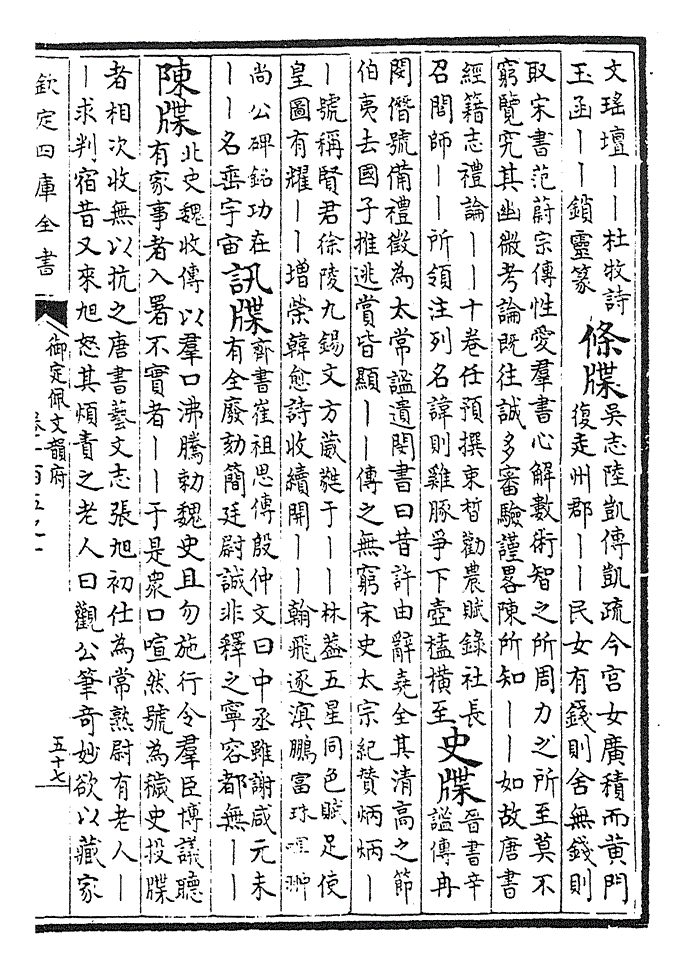 文瑤壇丨丨杜牧詩
玉函丨丨鎖靈篆
條牒
吳志陸凱傳凱疏今宮女廣積而黃門
復走州郡丨丨民女有錢則舍無錢則
取宋書范蔚宗傳性愛羣書心解數術智之所周力之所至莫不
窮覽究其幽微考論既往誠多審驗謹畧陳所知丨丨如故唐書
經籍志禮論丨丨十卷任預撰束晳勸農賦錄社長
召閭師丨丨所領注列名諱則雞豚爭下壺榼橫至
史牒
晉書辛
謐傳冉
閔僭號備禮徵為太常謐遺閔書曰昔許由辭堯全其清高之節
伯夷去國子推逃賞皆顯丨丨傳之無窮宋史太宗紀贊炳炳丨
丨號稱賢君徐陵九錫文方葳蕤于丨丨林益五星同色賦足使
皇圖有耀丨丨增榮韓愈詩收績開丨丨翰飛逐溟鵬富珠
尚公碑銘功在
丨丨名垂宇宙
訊牒
齊書崔祖思傳殷仲文曰中丞雖謝咸元未
有全廢劾簡廷尉誠非釋之寧容都無丨丨
陳牒
北史魏收傳以羣口沸騰勅魏史且勿施行令羣臣博議聽
有家事者入署不實者丨丨于是衆口喧然號為穢史投牒
者相次收無以抗之唐書藝文志張旭初仕為常熟尉有老人丨
丨求判宿昔又來旭怒其煩責之老人曰觀公筆奇妙欲以藏家
欽定四庫全書
御定佩文韻府
卷一百五之一
五十七